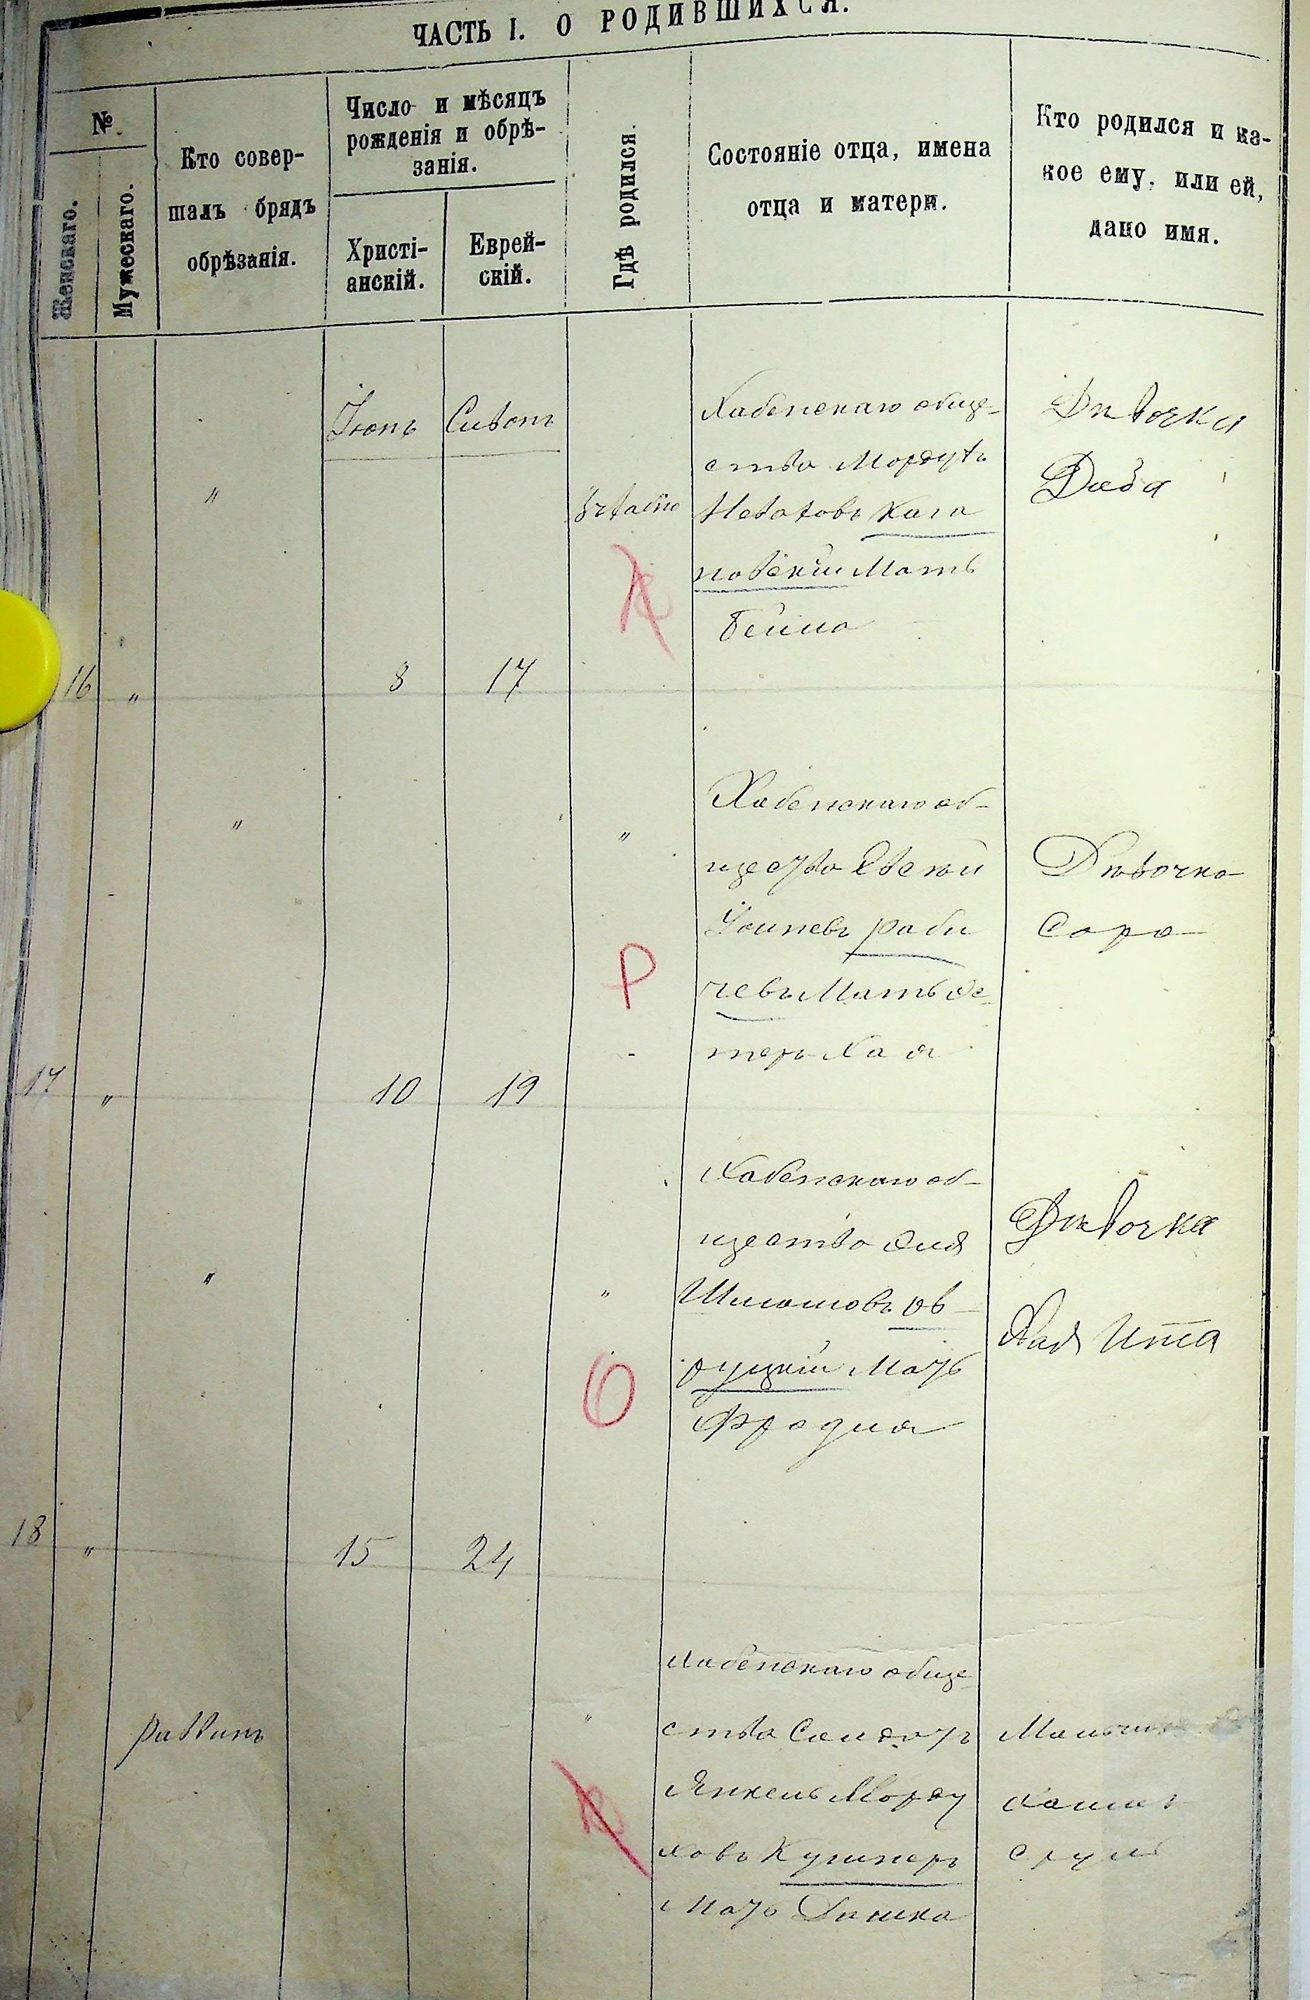 ЧАСТЬ I. О РОДИВШИХСЯ.
№
Женскаго.
Мужескаго.
Кто совер-
шалъ обрядъ
обрѣзанія.
Число и мѣсяцъ
рожденія и обрѣ-
занія.
Христі-
анскій.
Еврей-
скій.
Гдѣ родился.
Состояніе отца, имена
отца и матери.
Кто родился и ка-
кое ему, или ей,
дано имя.
Іюнь
Сивонъ
"
Хабенскаго обще-
ства Мордухъ
Кага
новскій Мать
Бейла
Дѣвочка
16
"
8
17
"
"
Хабенскаго об-
щества Овсей
раби
чевъ Мать Эс-
теръ Хая
Дѣвочка
Сара
Р
17
"
10
19
"
"
Хабенскаго об-
щества
Шліомовъ Ов-
руцкій Мать
Фрадля
Дѣвочка
Хая Ита
О
18
"
15
24
раввинъ
"
Хабенскаго обще-
ства
Янкель Морду
ховъ Кушнеръ
Мать
Мальчикъ
сруль